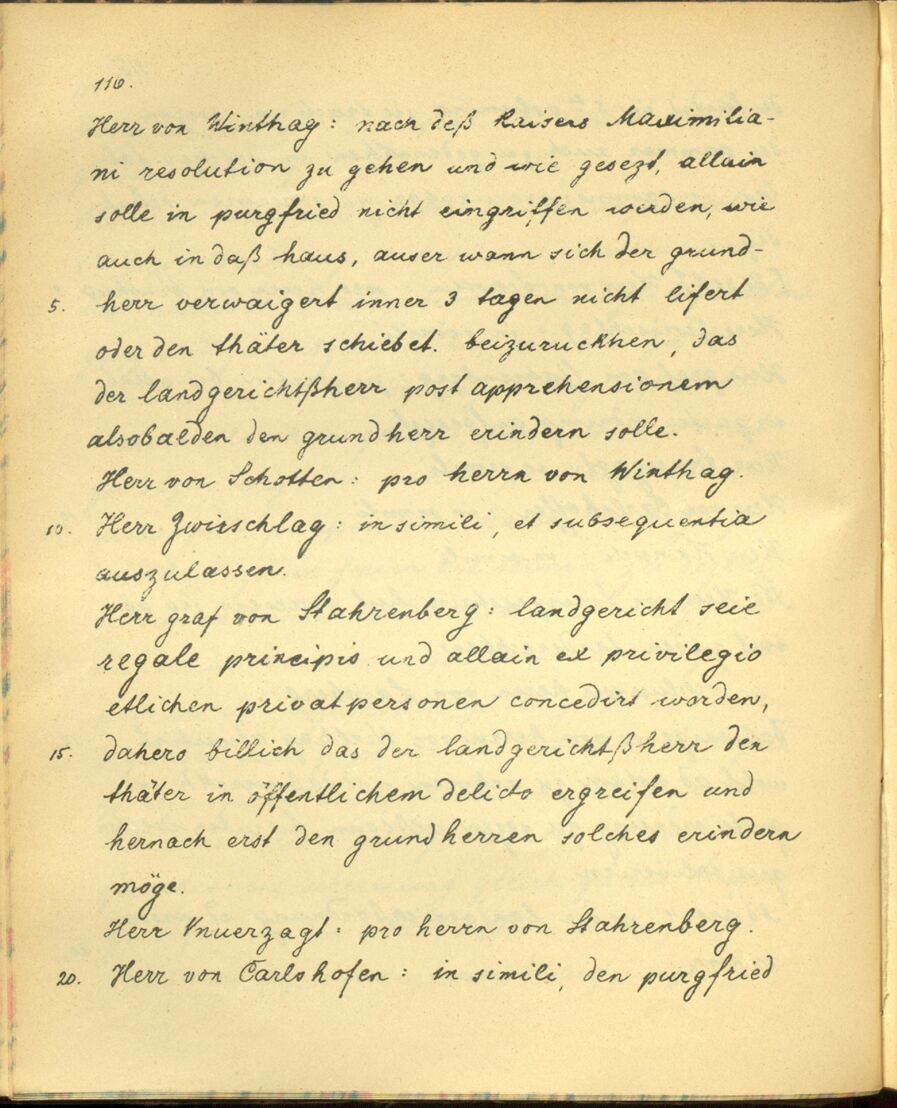 116.
Herr von Winthag: nach deß Kaisers Maximilia-
ni resolution zu gehen und wie gesezt, allain
solle in purgfried nicht eingriffen werden, wie
auch in daß haus, auser wann sich der grund-
5. herr verwaigert inner 3 tagen nicht lifert
oder den thäter schiebet. beizuruckhen, das
der landgerichtßherr post apprehensionem
alsobalden den grundherr erindern solle.
Herr von Schotten: pro herrn von Winthag.
10. Herr Zwirschlag: in simili, et subsequentia
auszulassen.
Herr graf von Stahrenberg: landgericht seie
regale principis und allain ex privilegio
etlichen privatpersonen concedirt worden,
15. dahero billich das der landgerichtßherr den
thäter in öffentlichem delicto ergreifen und
hernach erst den grundherren solches erindern
möge.
Herr Vnuerzagt: pro herrn von Stahrenberg.
20. Herr von Carlshofen: in simili, den purgfried